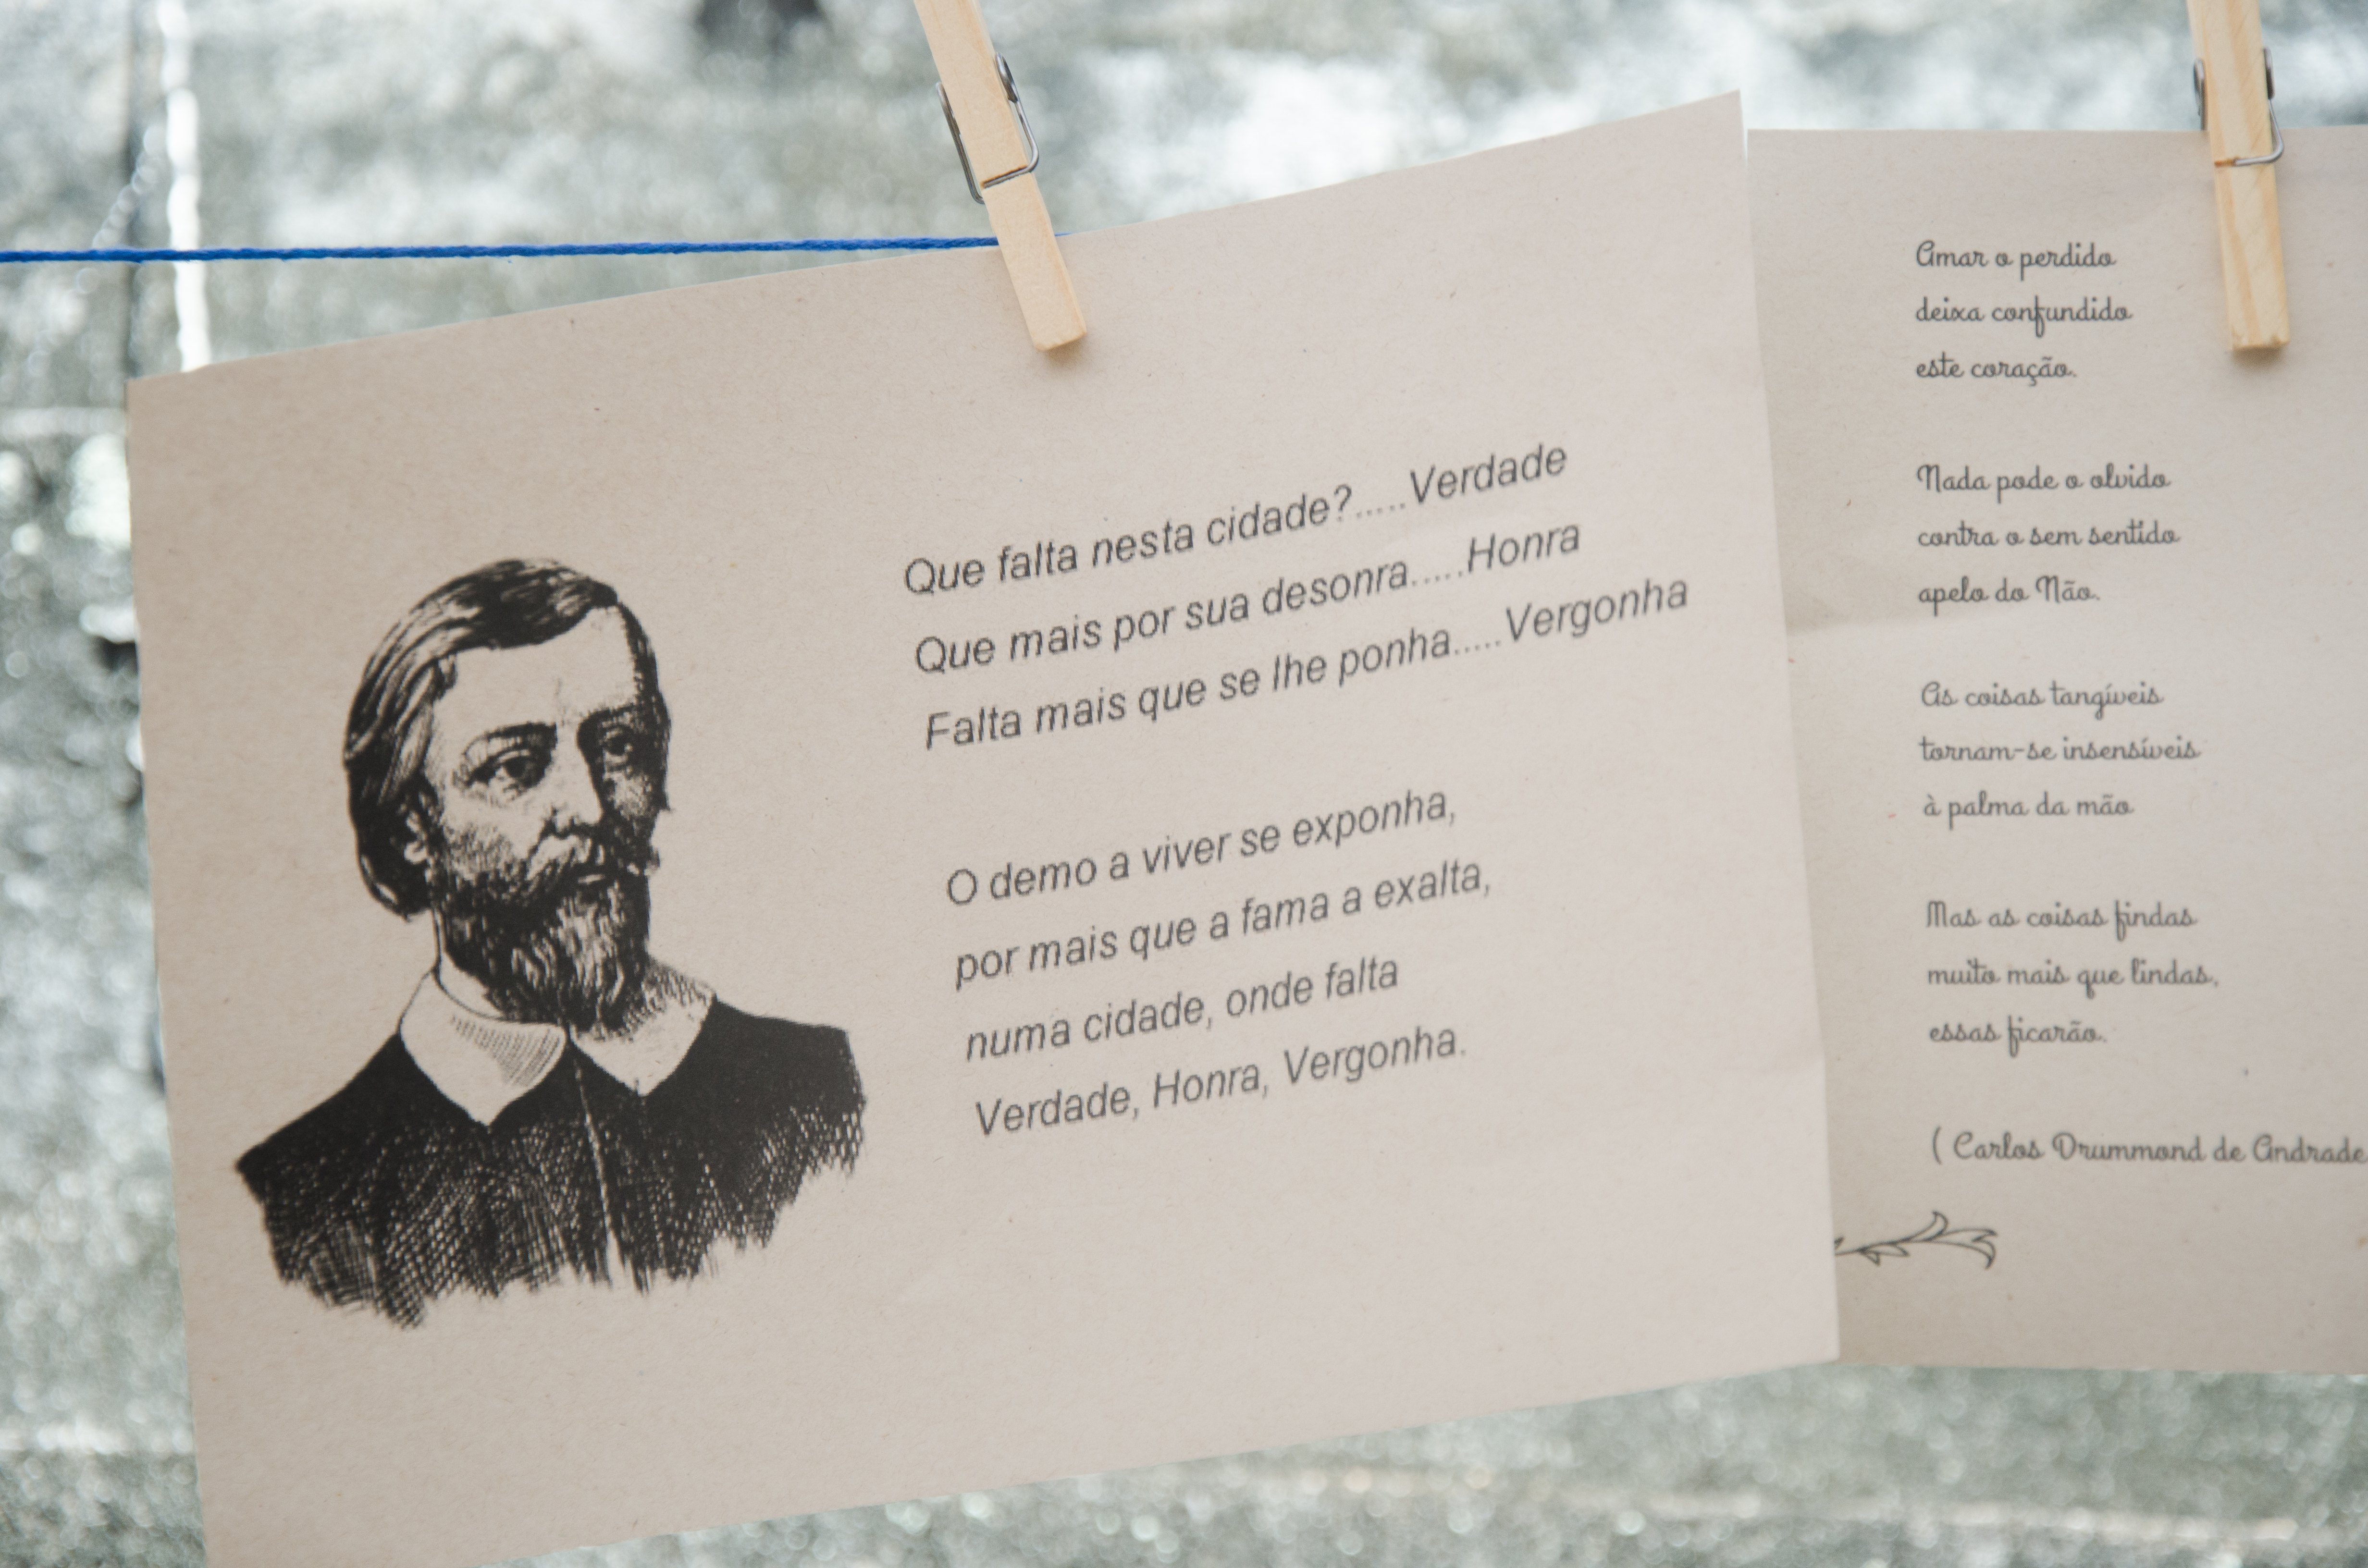 Que falta nesta cidade?.....Verdade
Que mais por sua desonra.....Honra
Falta mais que se lhe ponha.....Vergonha
O demo a viver se exponha,
por mais que a fama a exalta,
numa cidade, onde falta
Verdade, Honra, Vergonha.
Amar o perdido
deixa confundido
este coração.
Nada pode o olvido
contra o sem sentido
apelo do Não.
As coisas tangíveis
tornam-se insensíveis
à palma da mão
Mas as coisas findas
muito mais que lindas,
essas ficarão.
( Carlos Drummond de Andrade